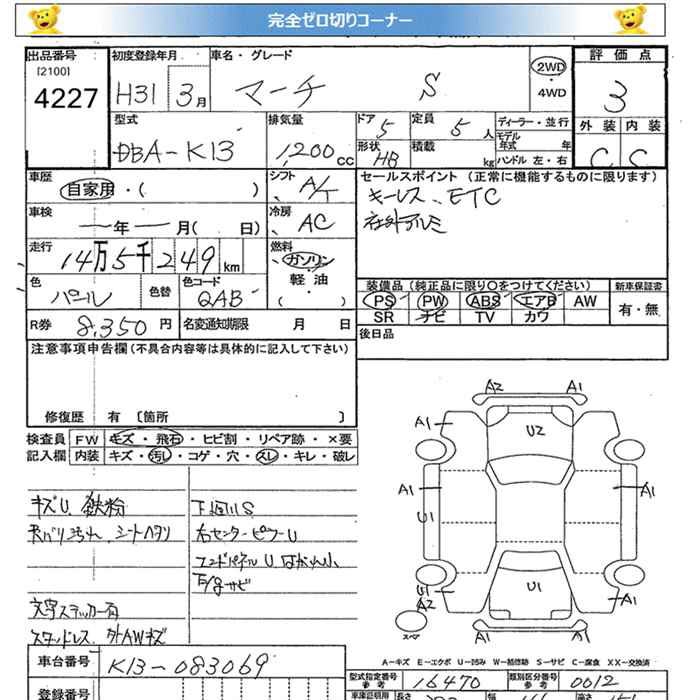 完全ゼロ切りコーナー
出品番号 初度登録年月 車名・グレード 評価点
[2100]
4227 H31 3月 マーチ S 2WD ・ 4WD 3
外装 内装
C C
型式 排気量 ドア 5 定員 5 人 ディーラー・並行
DBA-K13 1,200 cc 形状 HB 積載 kg モデル年式 年
ハンドル 左・右
車歴 シフト セールスポイント (正常に機能するものに限ります)
自家用・( ) A/T キーレス、ETC
車検 冷房 社外アルミ
年 月( 日) AC
走行 燃料
14万5千249km ガソリン・
軽油
・( )
色 色替 色コード
パール QAB
装備品(純正品に限り○をつけてください) 新車保証書
PS PW ABS エアB AW 有・無
SR ナビ TV カワ
R券 8,350 円 名変通知期限 月 日
後日品
注意事項申告欄(不具合内容等は具体的に記入して下さい)
修復歴 有 〔箇所 〕
検査員 FW キズ・飛石・ヒビ割・リペア跡・×要
記入欄 内装 キズ・汚レ・コゲ・穴・スレ・キレ・破レ
キズU、鉄粉 下廻りS
シートヘタリ
右センターピラーU
エンドパネルU
下廻サビ
文字ステッカー有
スタッドレス、外AWキズ
A2 A1
A1 U2 A1
A1 A1
U1
U1 U1
A2
スペア
A1 A1
A-キズ E-エクボ U-凹み W-補修跡 S-サビ C-腐食 XX-交換済
車台番号 K13-083069
型式指定番号 16470 類別区分番号 0012
登録番号
車庫証明用 長さ 幅 高さ